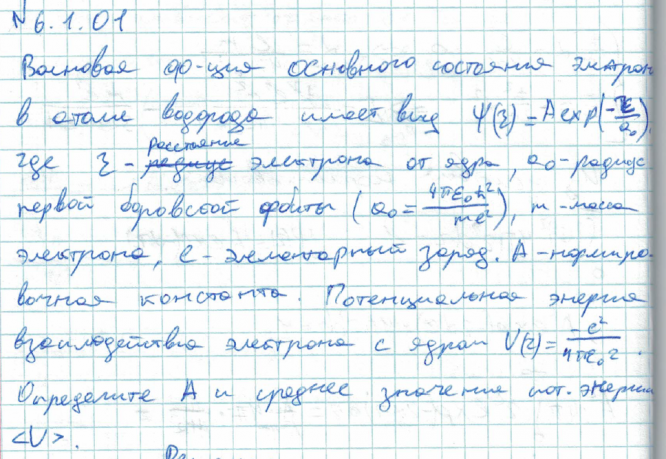 №6.1.01
Волновая ф-ция основного состояния электрон
в атоме водорода имеет вид ψ(r) = A exp(-r/a₀),
где r - расстояние электрона от ядра, a₀ - радиус
первой боровской орбиты (a₀ = 4πε₀ħ²/me²), m - масса
электрона, e - элементарный заряд. A - нормиро-
вочная константа. Потенциальная энергия
взаимодействия электрона с ядром U(r) = -e²/4πε₀r.
Определите A и среднее значение пот. энергии
<U>.